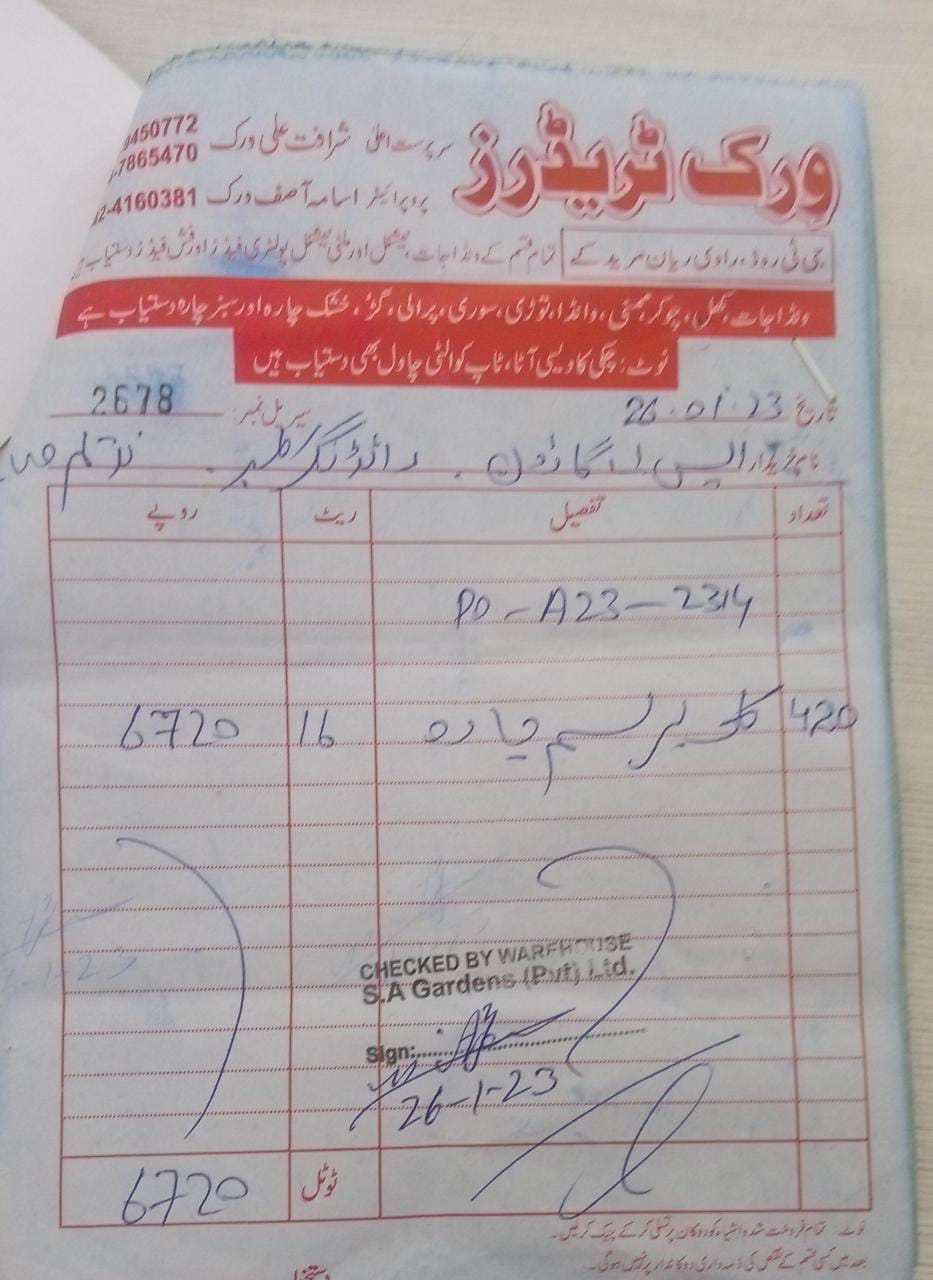 ورک ٹریڈرز
سرپرست اعلیٰ شرافت علی ورک 0450772
7865470
پروپرائیٹر اسامہ آصف ورک 2-4160381
جی ٹی روڈ، راوی ریان مریدکے تمام قسم کے ونڈاجات، نیشنل اور ملٹی نیشنل پولٹری فیڈز اور فش فیڈز دستیاب
ونڈاجات، کھل، چوکر، مکئی، وانڈا، توڑی، سوری، پرالی، گڑ، خشک چارہ اور سبز چارہ دستیاب ہے
نوٹ: چکی کا دیسی آٹا، ٹاپ کوالٹی چاول بھی دستیاب ہیں
تاریخ 26.01.23 سیریل نمبر: 2678
نام خریدار ایس اے گارڈن . رائڈنگ کلب .
تعداد تفصیل ریٹ روپے
PO-A23-2314
420 کلو برسیم چارہ 16 6720
CHECKED BY WAREHOUSE
S.A Gardens (Pvt) Ltd.
Sign:
26-1-23
ٹوٹل 6720
نوٹ: تمام فروخت شدہ اشیاء کو دوکان پر تسلی کر کے چیک کر لیں۔
بعد میں کسی قسم کے نقص کی ذمہ داری دوکاندار پر نہیں ہوگی۔